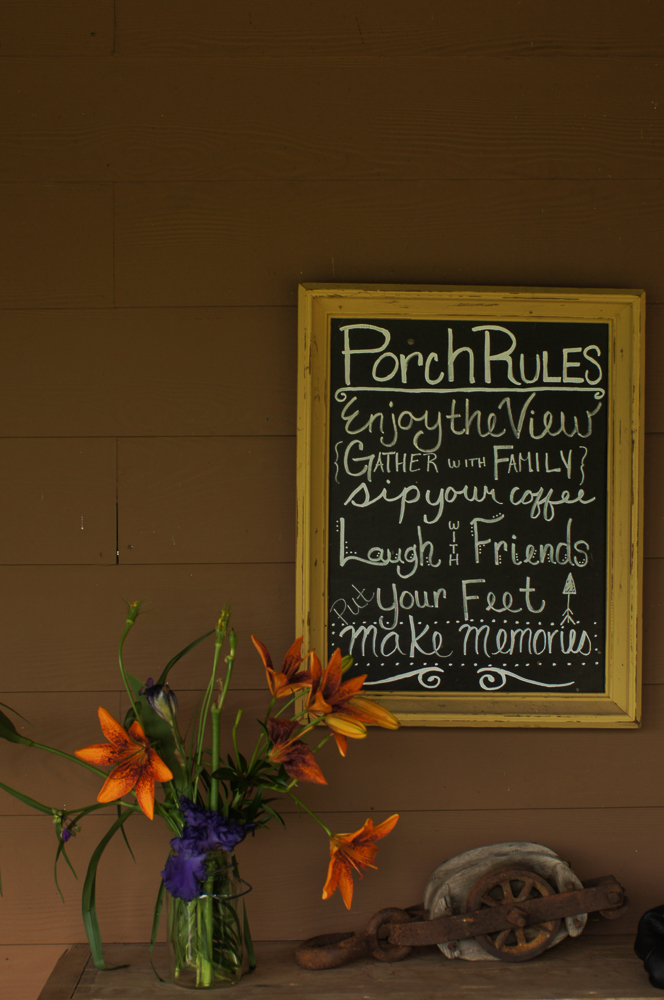 Porch Rules
Enjoy the View
{Gather with Family}
sip your coffee
Laugh with Friends
Put your Feet ↑
make memories